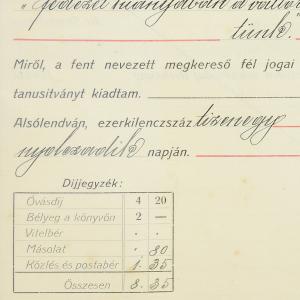 „fedezet hiányában a váltó
tünk.
Miről, a fent nevezett megkereső fél jogai
tanusitványt kiadtam.
Alsólendván, ezerkilenczszáz tizenegy
nyolczadik napján.
Dijjegyzék:
Óvásdij 4 20
Bélyeg a könyvön 2 —
Vitelbér . .
Másolat . 80
Közlés és postabér 1. 35
Összesen 8. 35